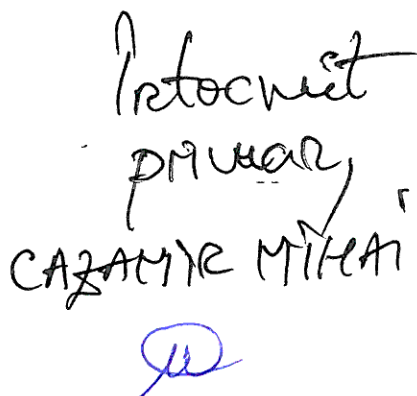 Întocmit
primar,
CAZAMIR MIHAI